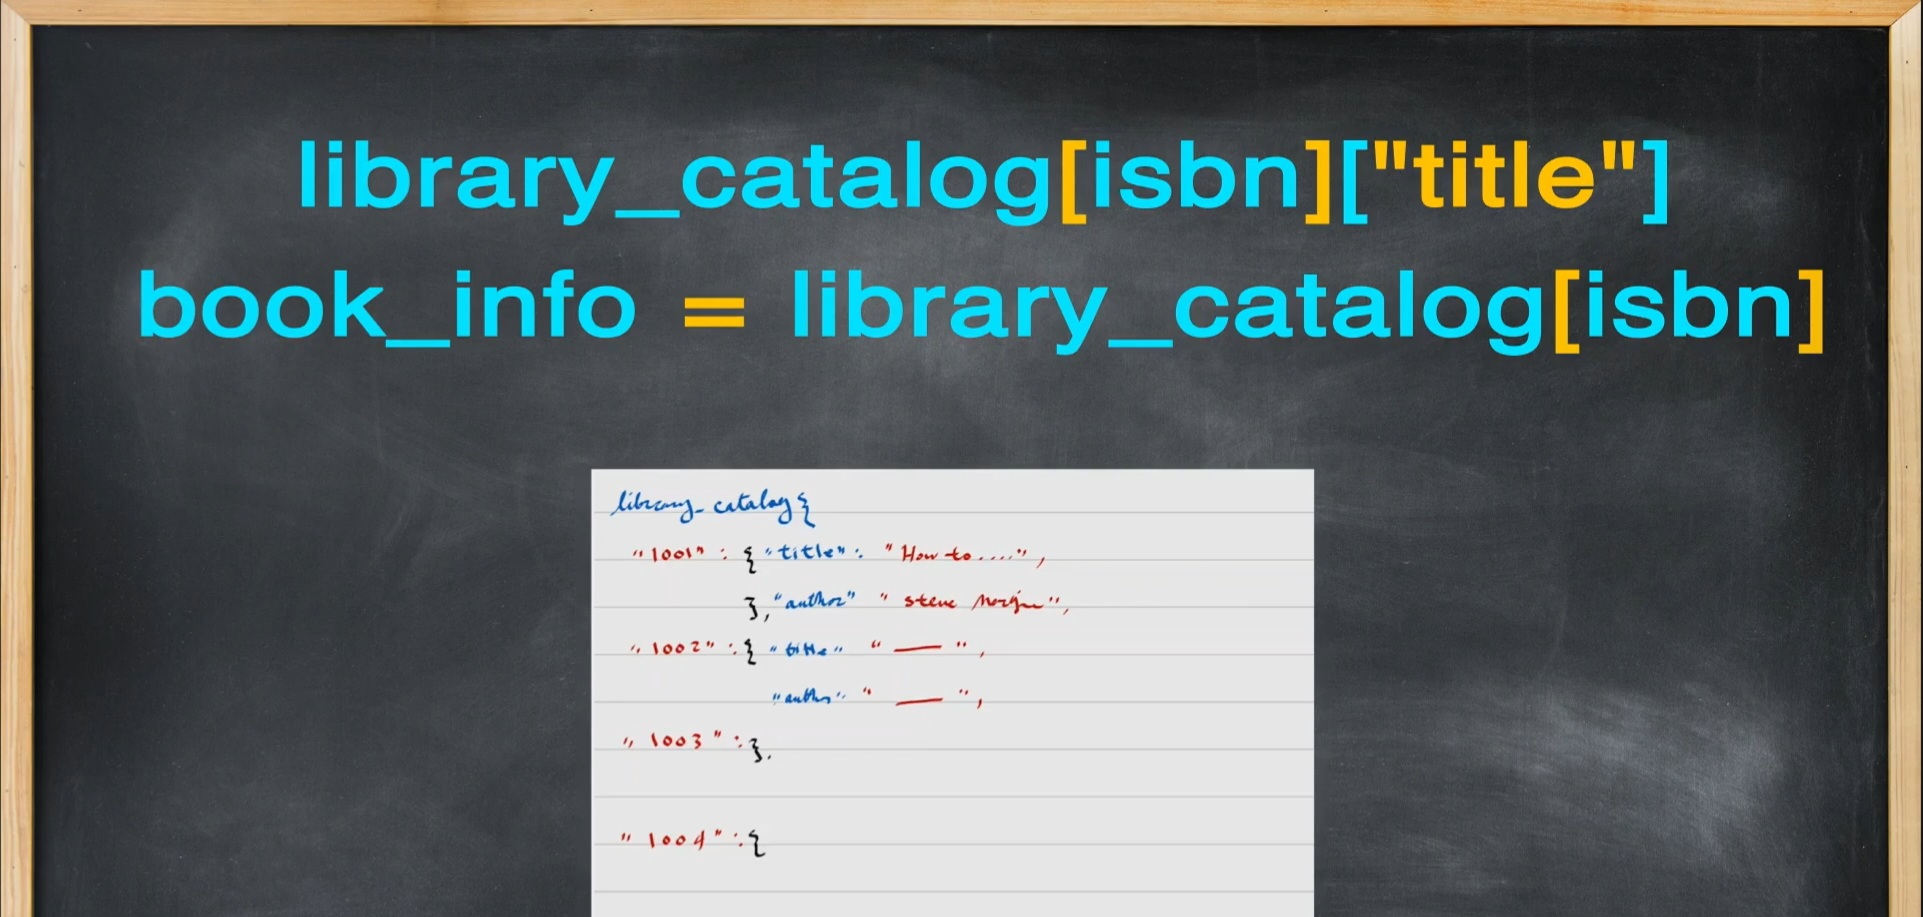 library_catalog[isbn]["title"]
book_info = library_catalog[isbn]
library_catalog{
"1001" : { "title": "How to....",
},"author" " steve
"1002" : { "title" " — ",
"author" " — ",
"1003" : }.
"1004" : {